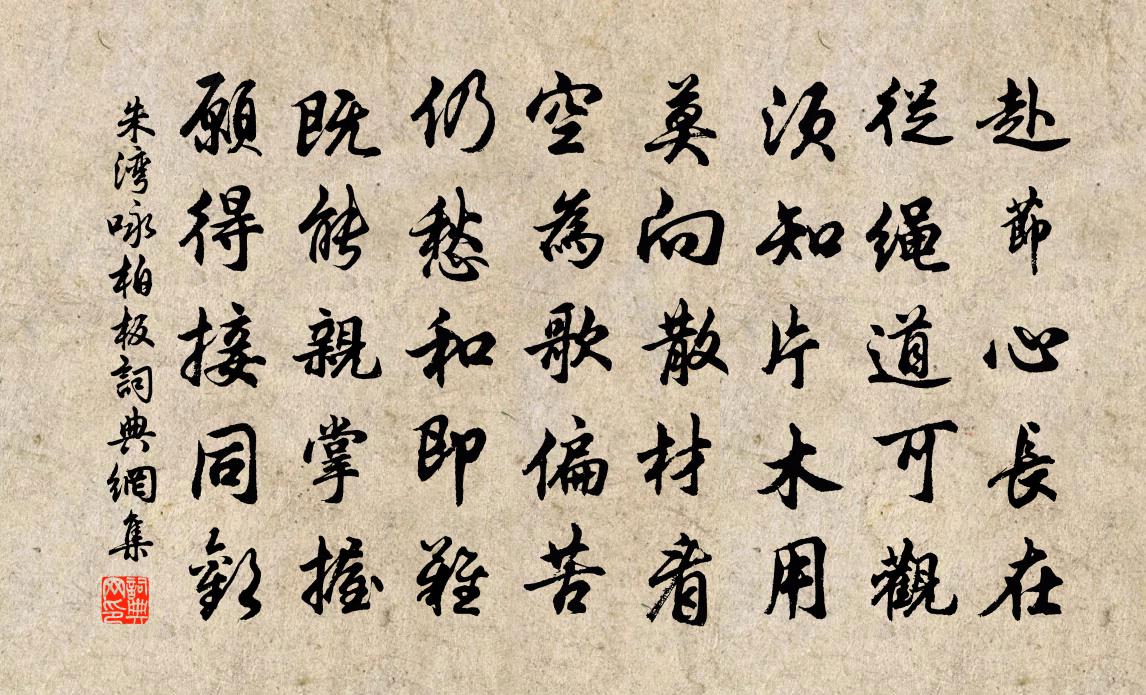 赴節心長在
從繩道可觀
須知片木用
莫向散材看
空為歌偏苦
仍愁和即難
既能親掌握
願得接同歡
朱湾咏柏板詞典網集
詞典网印